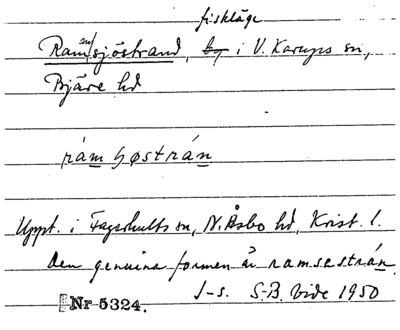 fiskläge
Ram/sjöstrand, by i V. Karups sn,
Bjäre hd
rámʃøstrán
Uppt. i Fagerhults sn, N. Åsbo hd, Krist. l.
Den genuina formen är ramsestrán.
J-s. S.B. Vide 1950
Nr 5324.